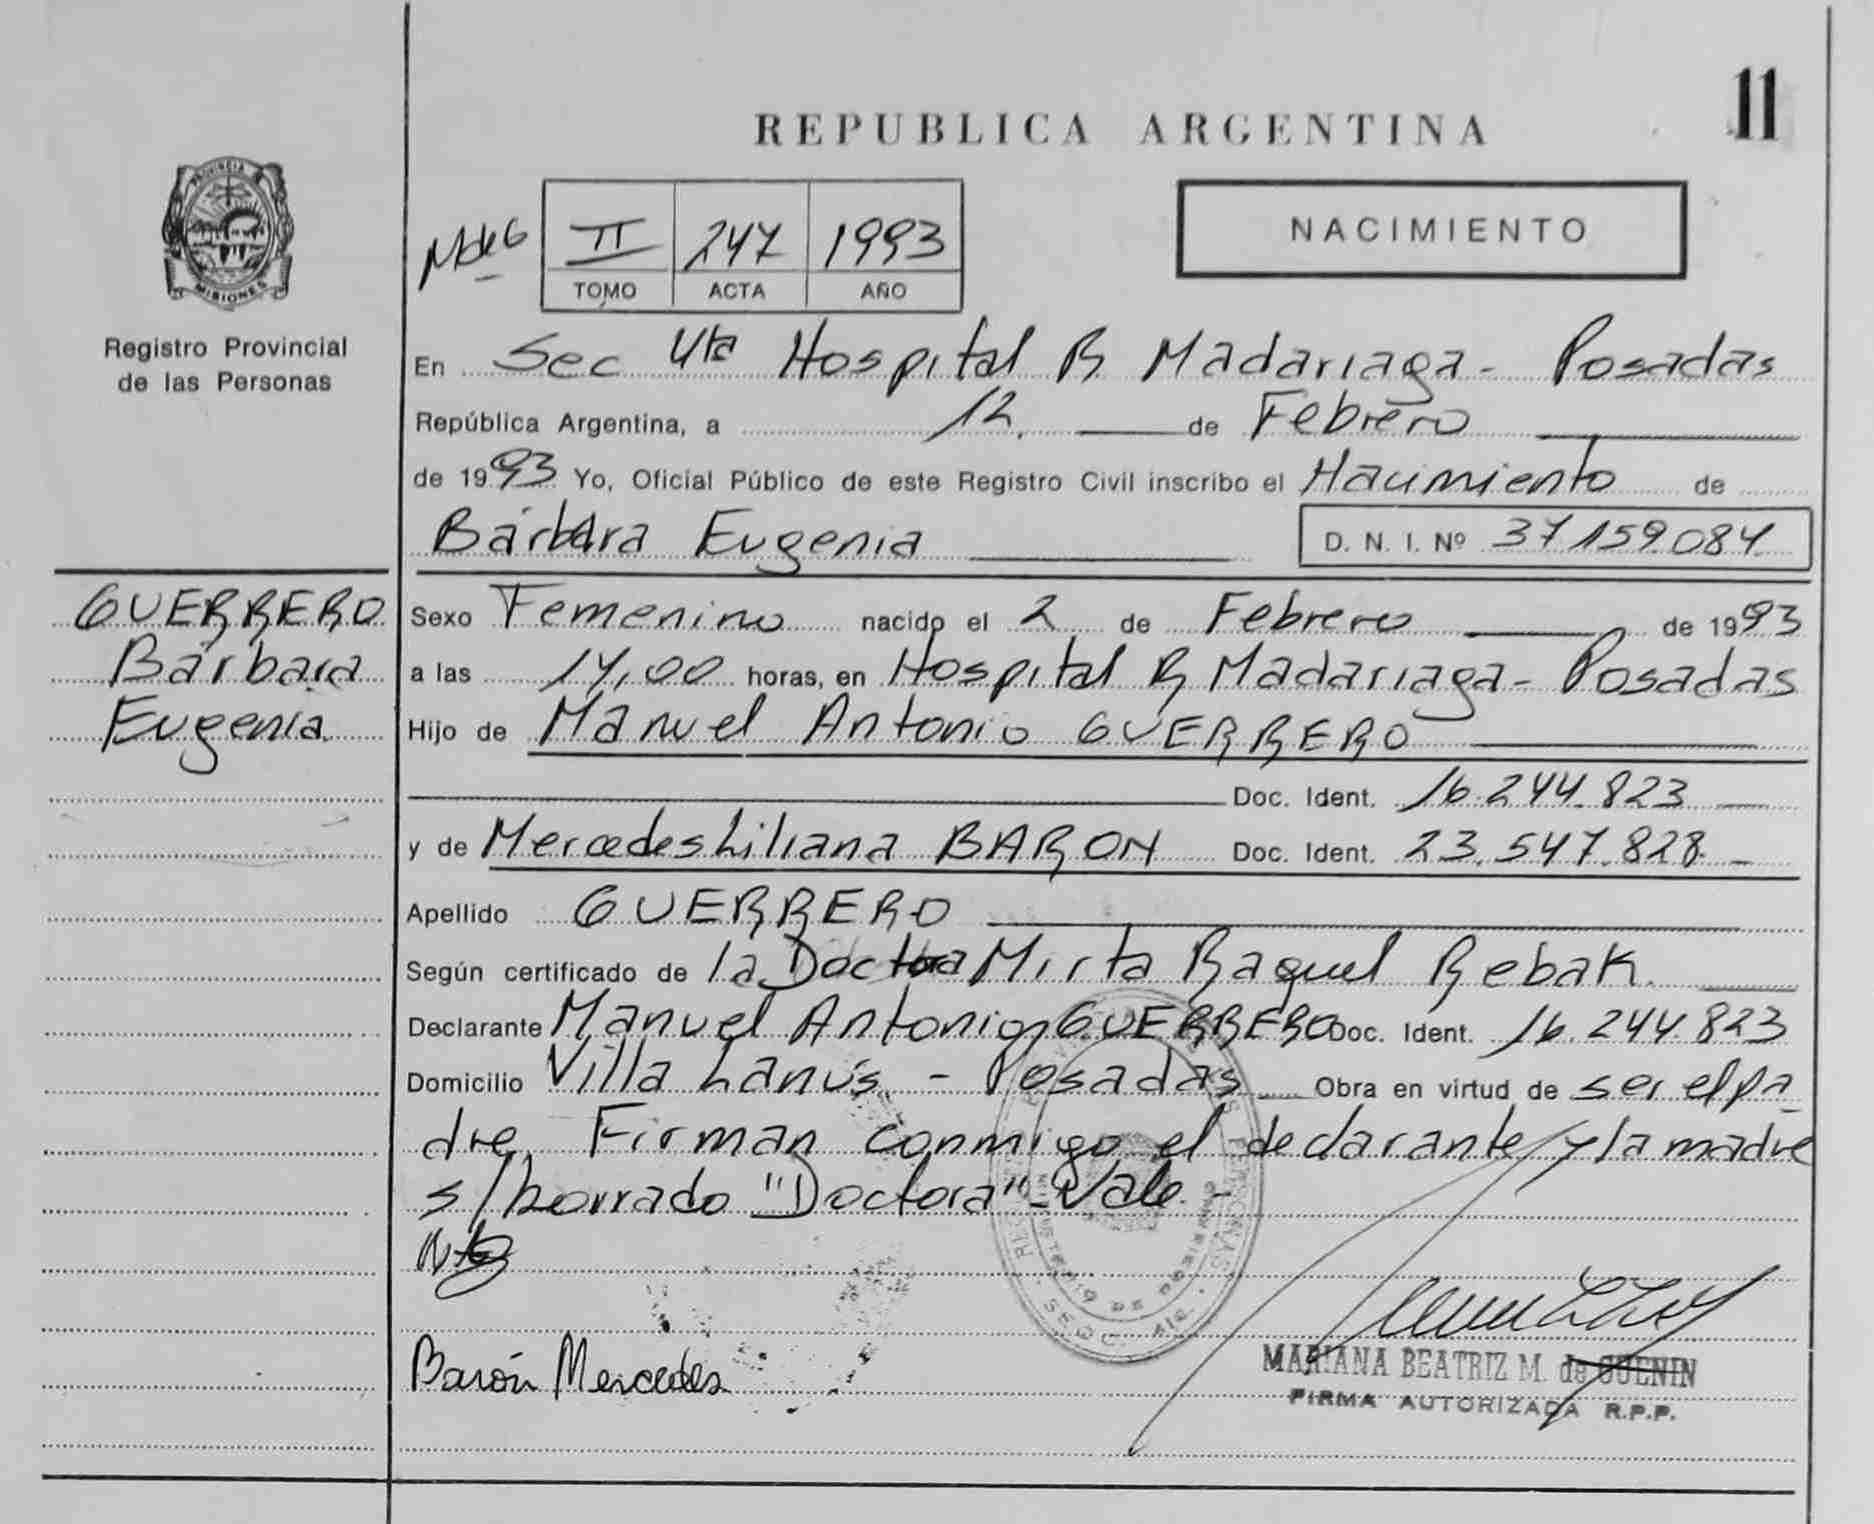 11
REPUBLICA ARGENTINA
PROVINCIA DE
MISIONES
Registro Provincial
de las Personas
II 247 1993
TOMO ACTA AÑO
NACIMIENTO
En Sec 4ta Hospital R Madariaga - Posadas
República Argentina, a 12 de Febrero
de 1993 Yo, Oficial Público de este Registro Civil inscribo el Nacimiento de
Bárbara Eugenia D. N. I. Nº 37159.084
GUERRERO
Bárbara
Eugenia
Sexo Femenino nacido el 2 de Febrero de 1993
a las 14,00 horas, en Hospital R Madariaga - Posadas
Hijo de Manuel Antonio GUERRERO
Doc. Ident. 16.244.823
y de Mercedes Liliana BARON Doc. Ident. 23.547.828
Apellido GUERRERO
Según certificado de la Doctora Mirta Raquel Rebak
Declarante Manuel Antonio GUERRERO Doc. Ident. 16.244.823
Domicilio Villa Lanús - Posadas Obra en virtud de ser el pa
dre, Firman conmigo el declarante y la madre
s/borrado "Doctora" - Vale -
Barón Mercedes
MINISTERIO DE GOBIERNO
MARIANA BEATRIZ M. de GUENIN
FIRMA AUTORIZADA R.P.P.